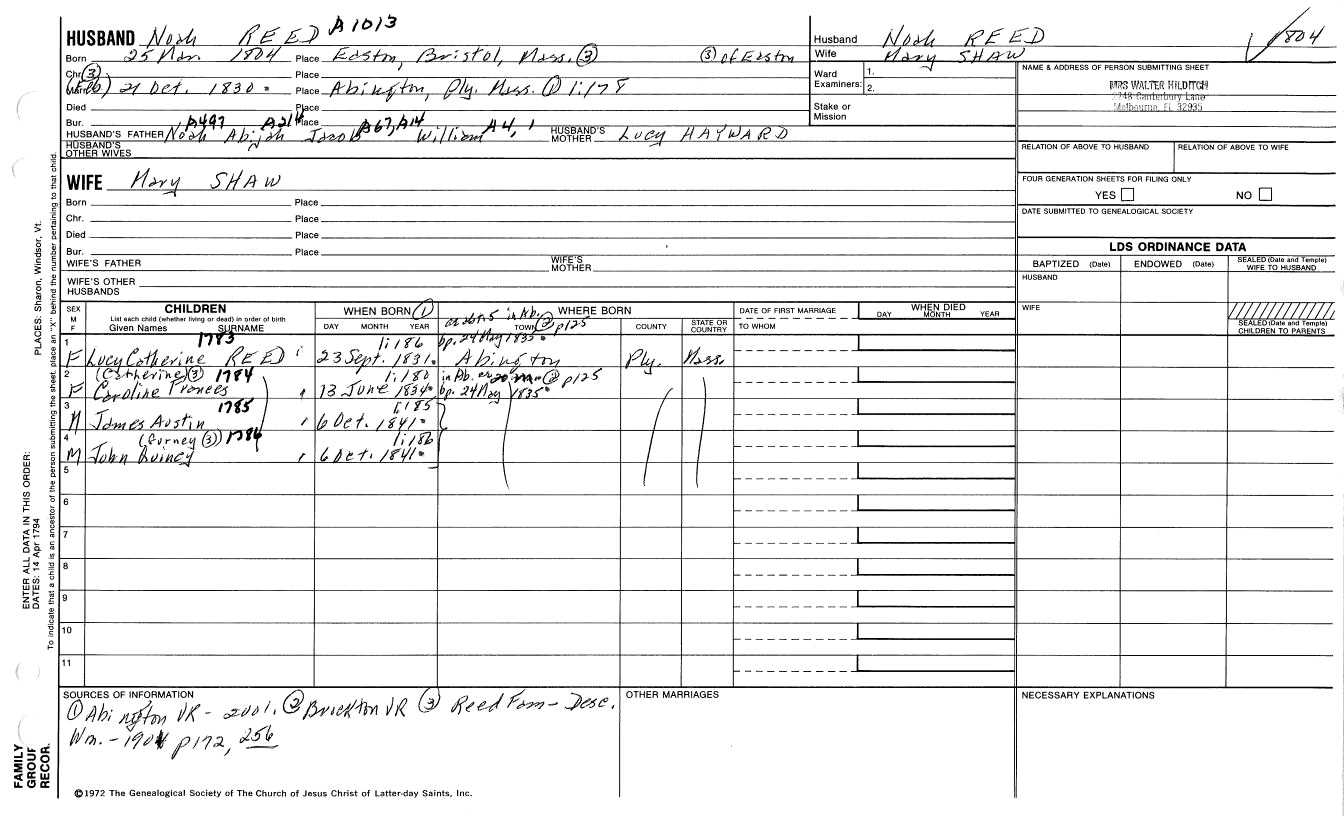 HUSBAND Noah REED A1013
Born 25 Mar. 1804 Place Easton, Bristol, Mass. ③ ③ of Easton
Chr. ③ Place
21 Oct. 1830 Place Abington, Ply. Mass. ① 1:178
Died Place
Bur. Place
A497 A214 A67, A14 A4, 1
HUSBAND'S FATHER Noah Abijah Jacob William HUSBAND'S MOTHER Lucy HAYWARD
HUSBAND'S OTHER WIVES
Husband Noah REED
Wife Mary SHAW
1804
Ward Examiners: 1. 2.
Stake or Mission
NAME & ADDRESS OF PERSON SUBMITTING SHEET
MRS WALTER HILDITCH
2248 Canterbury Lane
Melbourne, FL 32935
RELATION OF ABOVE TO HUSBAND RELATION OF ABOVE TO WIFE
FOUR GENERATION SHEETS FOR FILING ONLY
YES NO
DATE SUBMITTED TO GENEALOGICAL SOCIETY
WIFE Mary SHAW
Born Place
Chr. Place
Died Place
Bur. Place
WIFE'S FATHER WIFE'S MOTHER
WIFE'S OTHER HUSBANDS
LDS ORDINANCE DATA
BAPTIZED (Date) ENDOWED (Date) SEALED (Date and Temple) WIFE TO HUSBAND
HUSBAND
WIFE
SEALED (Date and Temple) CHILDREN TO PARENTS
SEX M F
CHILDREN
List each child (whether living or dead) in order of birth
Given Names SURNAME
WHEN BORN ①
DAY MONTH YEAR
WHERE BORN
TOWN COUNTY STATE OR COUNTRY
DATE OF FIRST MARRIAGE
TO WHOM
WHEN DIED
DAY MONTH YEAR
in Ab. ② p125
1 1783 1:186 bp. 24 May 1835
F Lucy Catherine REED 23 Sept. 1831 Abington Ply. Mass.
2 (Catherine ③) 1784 1:180 in Ab. ② p125
F Caroline Frances 13 June 1834 bp. 24 May 1835
3 1785 1:185
M James Austin 6 Oct. 1841
4 (Gurney ③) 1786 1:186
M John Quincy 6 Oct. 1841
5
6
7
8
9
10
11
SOURCES OF INFORMATION
① Abington VR - 2001. ② Brockton VR ③ Reed Fam - Desc.
Wm. - 1901 p172, 256
OTHER MARRIAGES
NECESSARY EXPLANATIONS
©1972 The Genealogical Society of The Church of Jesus Christ of Latter-day Saints, Inc.
FAMILY GROUP RECOR.
ENTER ALL DATA IN THIS ORDER:
DATES: 14 Apr 1794
PLACES: Sharon, Windsor, Vt.
To indicate that a child is an ancestor of the person submitting the sheet, place an "X" behind the number pertaining to that child.